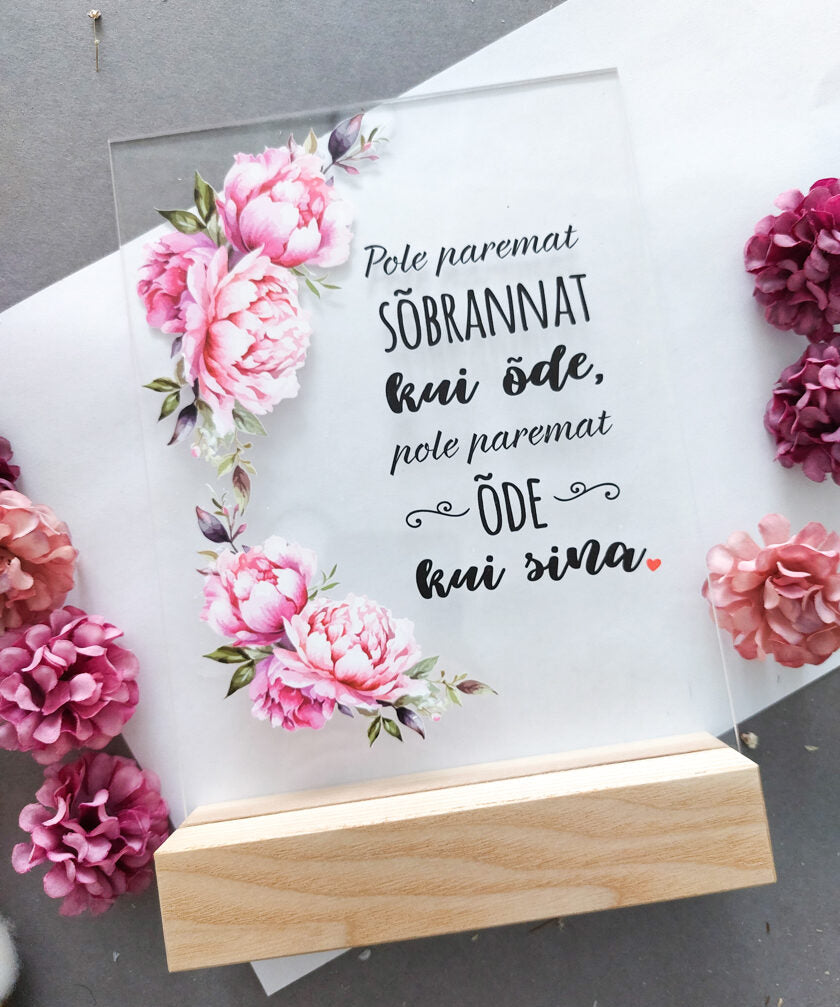 Pole paremat
SÕBRANNAT
kui õde,
pole paremat
ÕDE
kui sina.